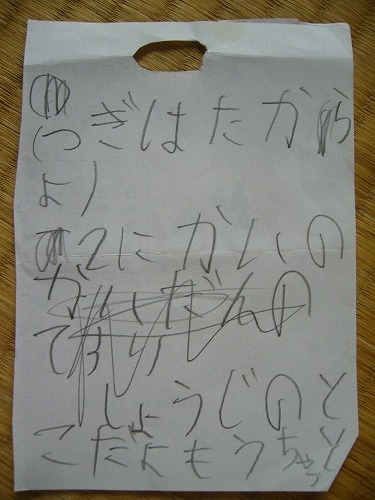 (つぎはたから
よ)
2にかいの
かいだんの
てすり
しょうじのと
こだよもうちゃっと